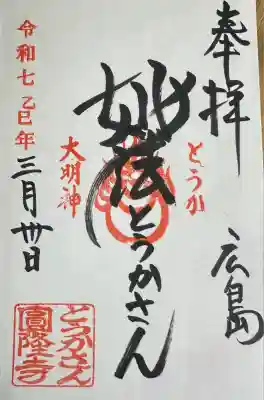 奉拝
広島
とうか
妙法とうかさん
大明神
令和七乙巳年
三月卅日
とうかさん
圓隆寺